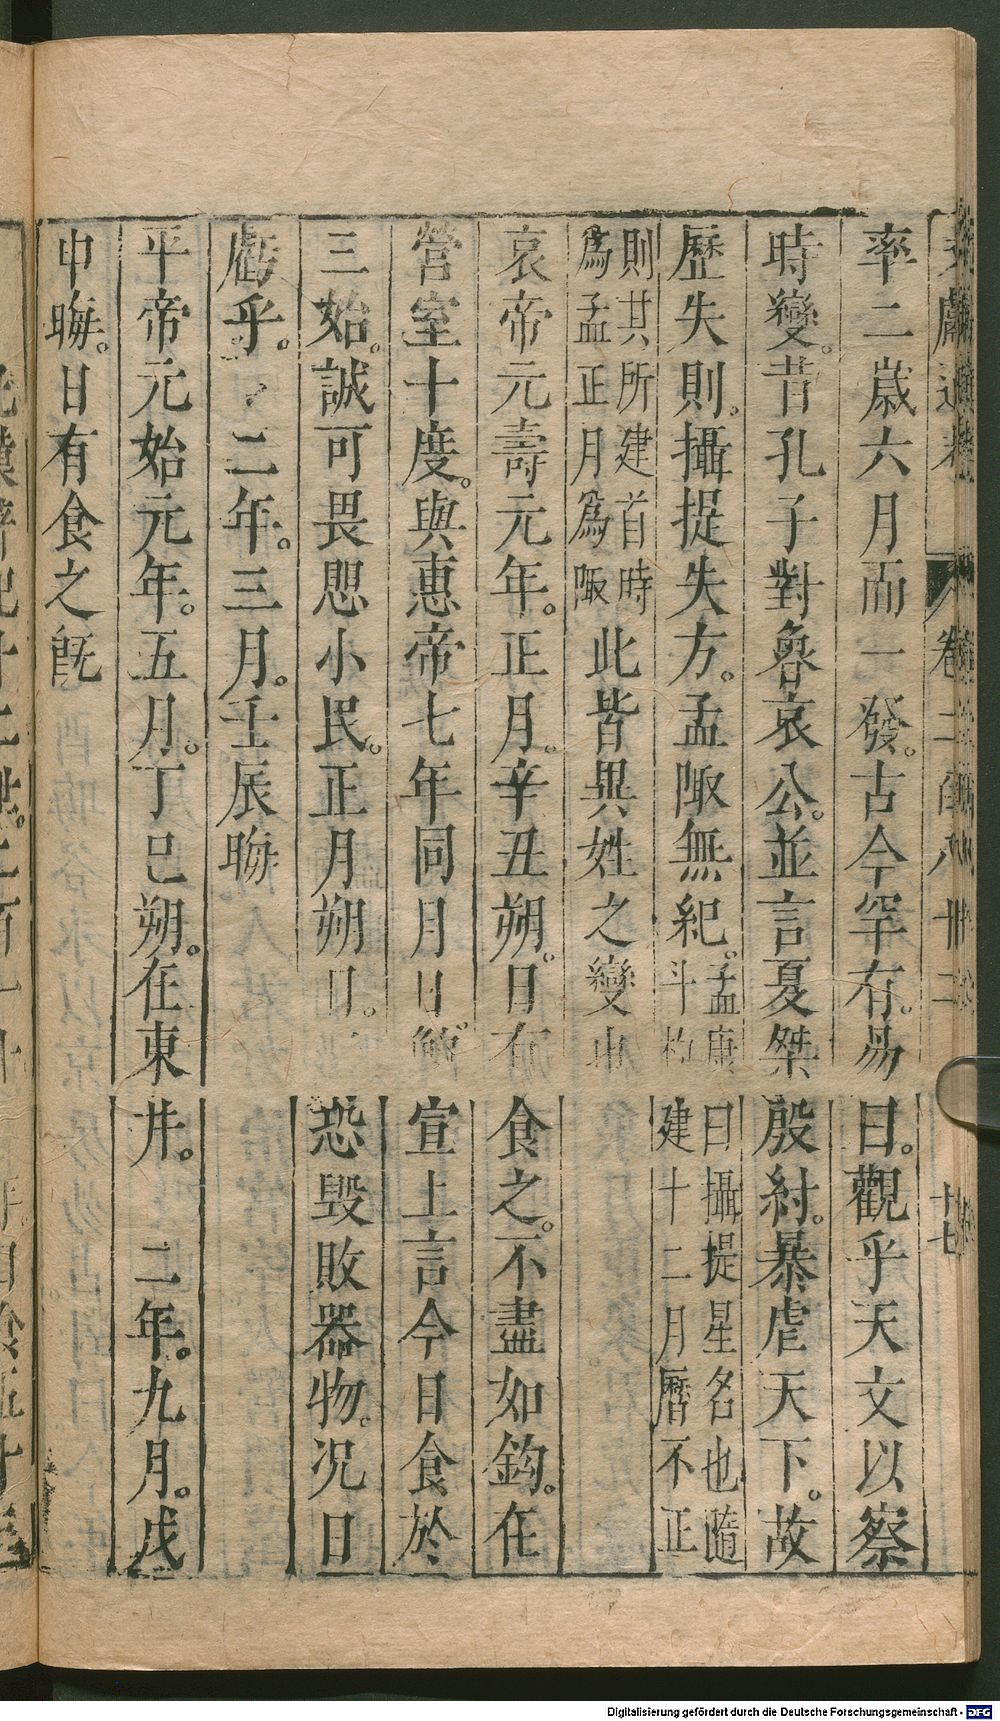 率二歲六月而一發。古今罕有。易曰。觀乎天文以察
時變。昔孔子對魯哀公。並言夏桀殷紂。暴虐天下。故
歷失則。攝提失方。孟陬無紀。孟康曰攝提星名也隨斗杓建十二月曆不正
則其所建首時爲孟正月爲陬此皆異姓之變也
哀帝元壽元年。正月。辛丑朔。日有食之。不盡如鈎。在
營室十度。與惠帝七年同月日 宣上言今日食於
三始。誠可畏愳小民。正月朔日。恐毀敗器物。況日
虧乎。二年。三月。壬辰晦
平帝元始元年。五月。丁巳朔。在東井。二年。九月。戊
申晦。日有食之旣
卷二 十七
Digitalisierung gefördert durch die Deutsche Forschungsgemeinschaft - DFG